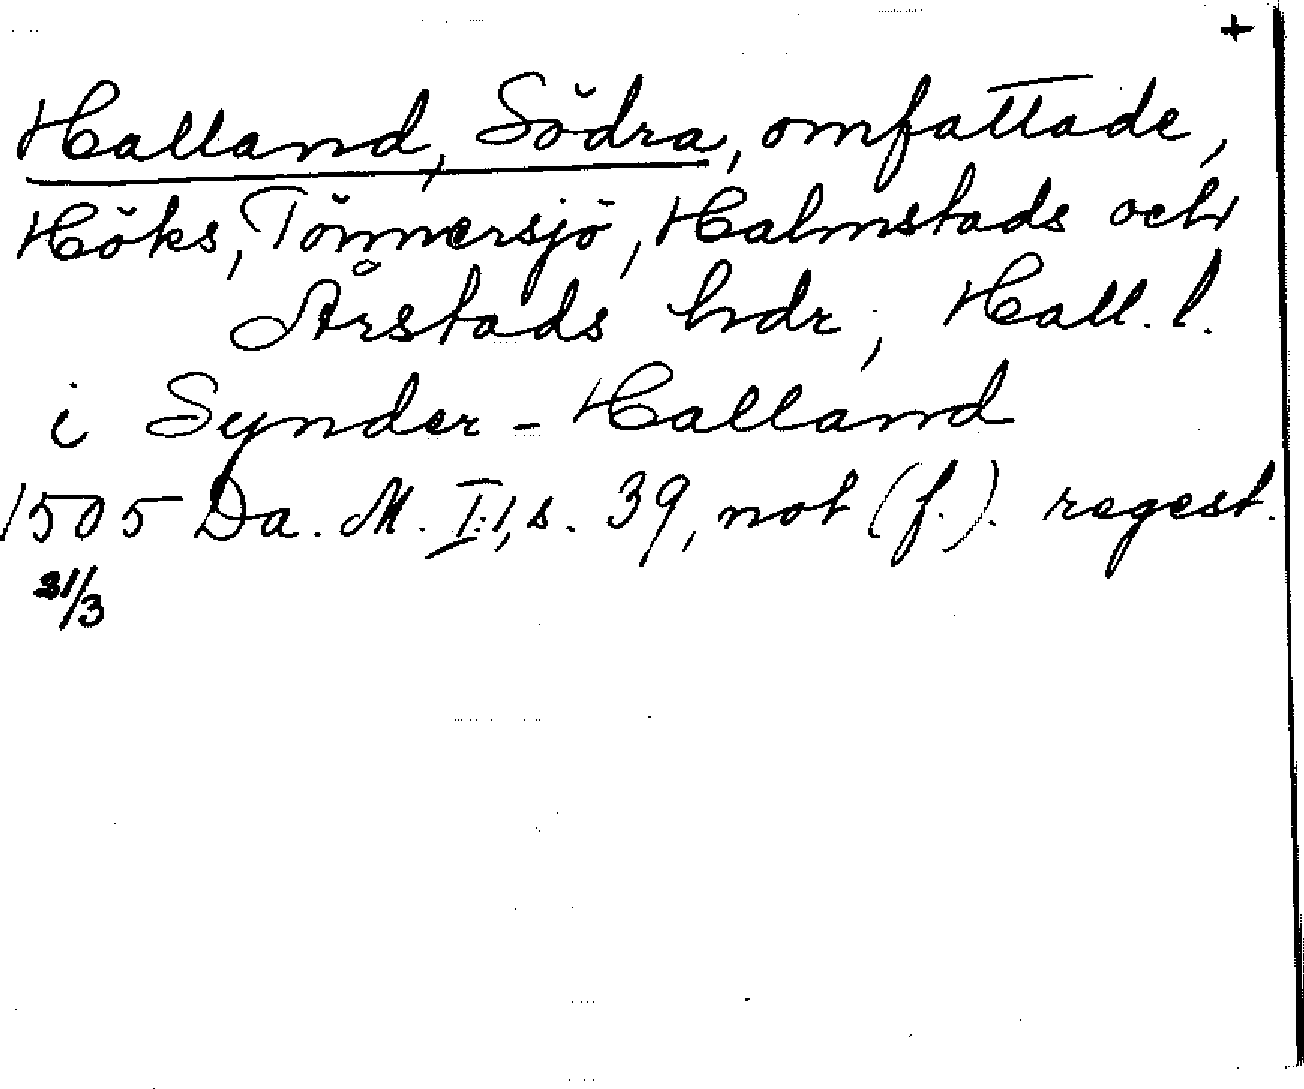 +
Halland, Södra, omfattade,
Höks, Tönnersjö, Halmstads och
Årstads hdr, Hall. l.
i Synder-Halland
1505 Da. M. I:1, s. 39, not (f.). regest.
31/3